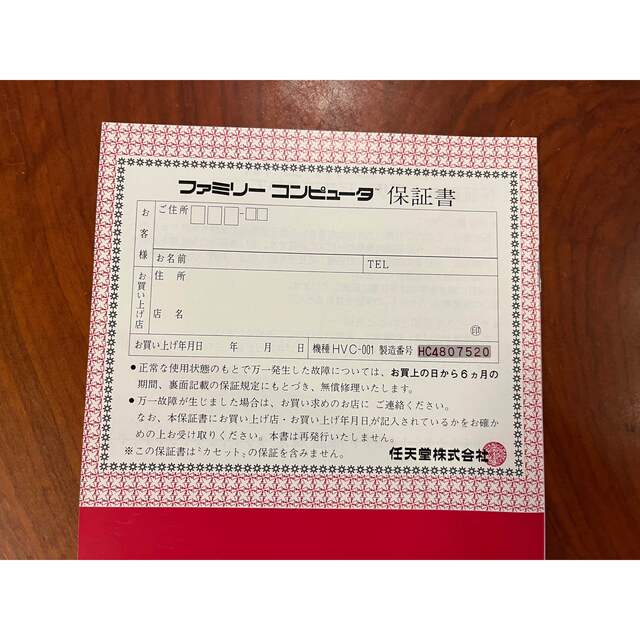 ファミリー コンピュータ™ 保証書
お客様
ご住所 -
お名前
TEL
お買い上げ店
住所
店名
印
お買い上げ年月日 年 月 日 機種 HVC-001 製造番号 HC4807520
●正常な使用状態のもとで万一発生した故障については、お買上の日から6ヵ月の
期間、裏面記載の保証規定にもとづき、無償修理いたします。
●万一故障が生じました場合は、お買い求めのお店に ご連絡ください。
なお、本保証書にお買い上げ店・お買い上げ年月日が記入されているかをお確か
めの上お受け取りください。本書は再発行いたしません。
※この保証書は〝カセット〟の保証を含みません。
任天堂株式会社